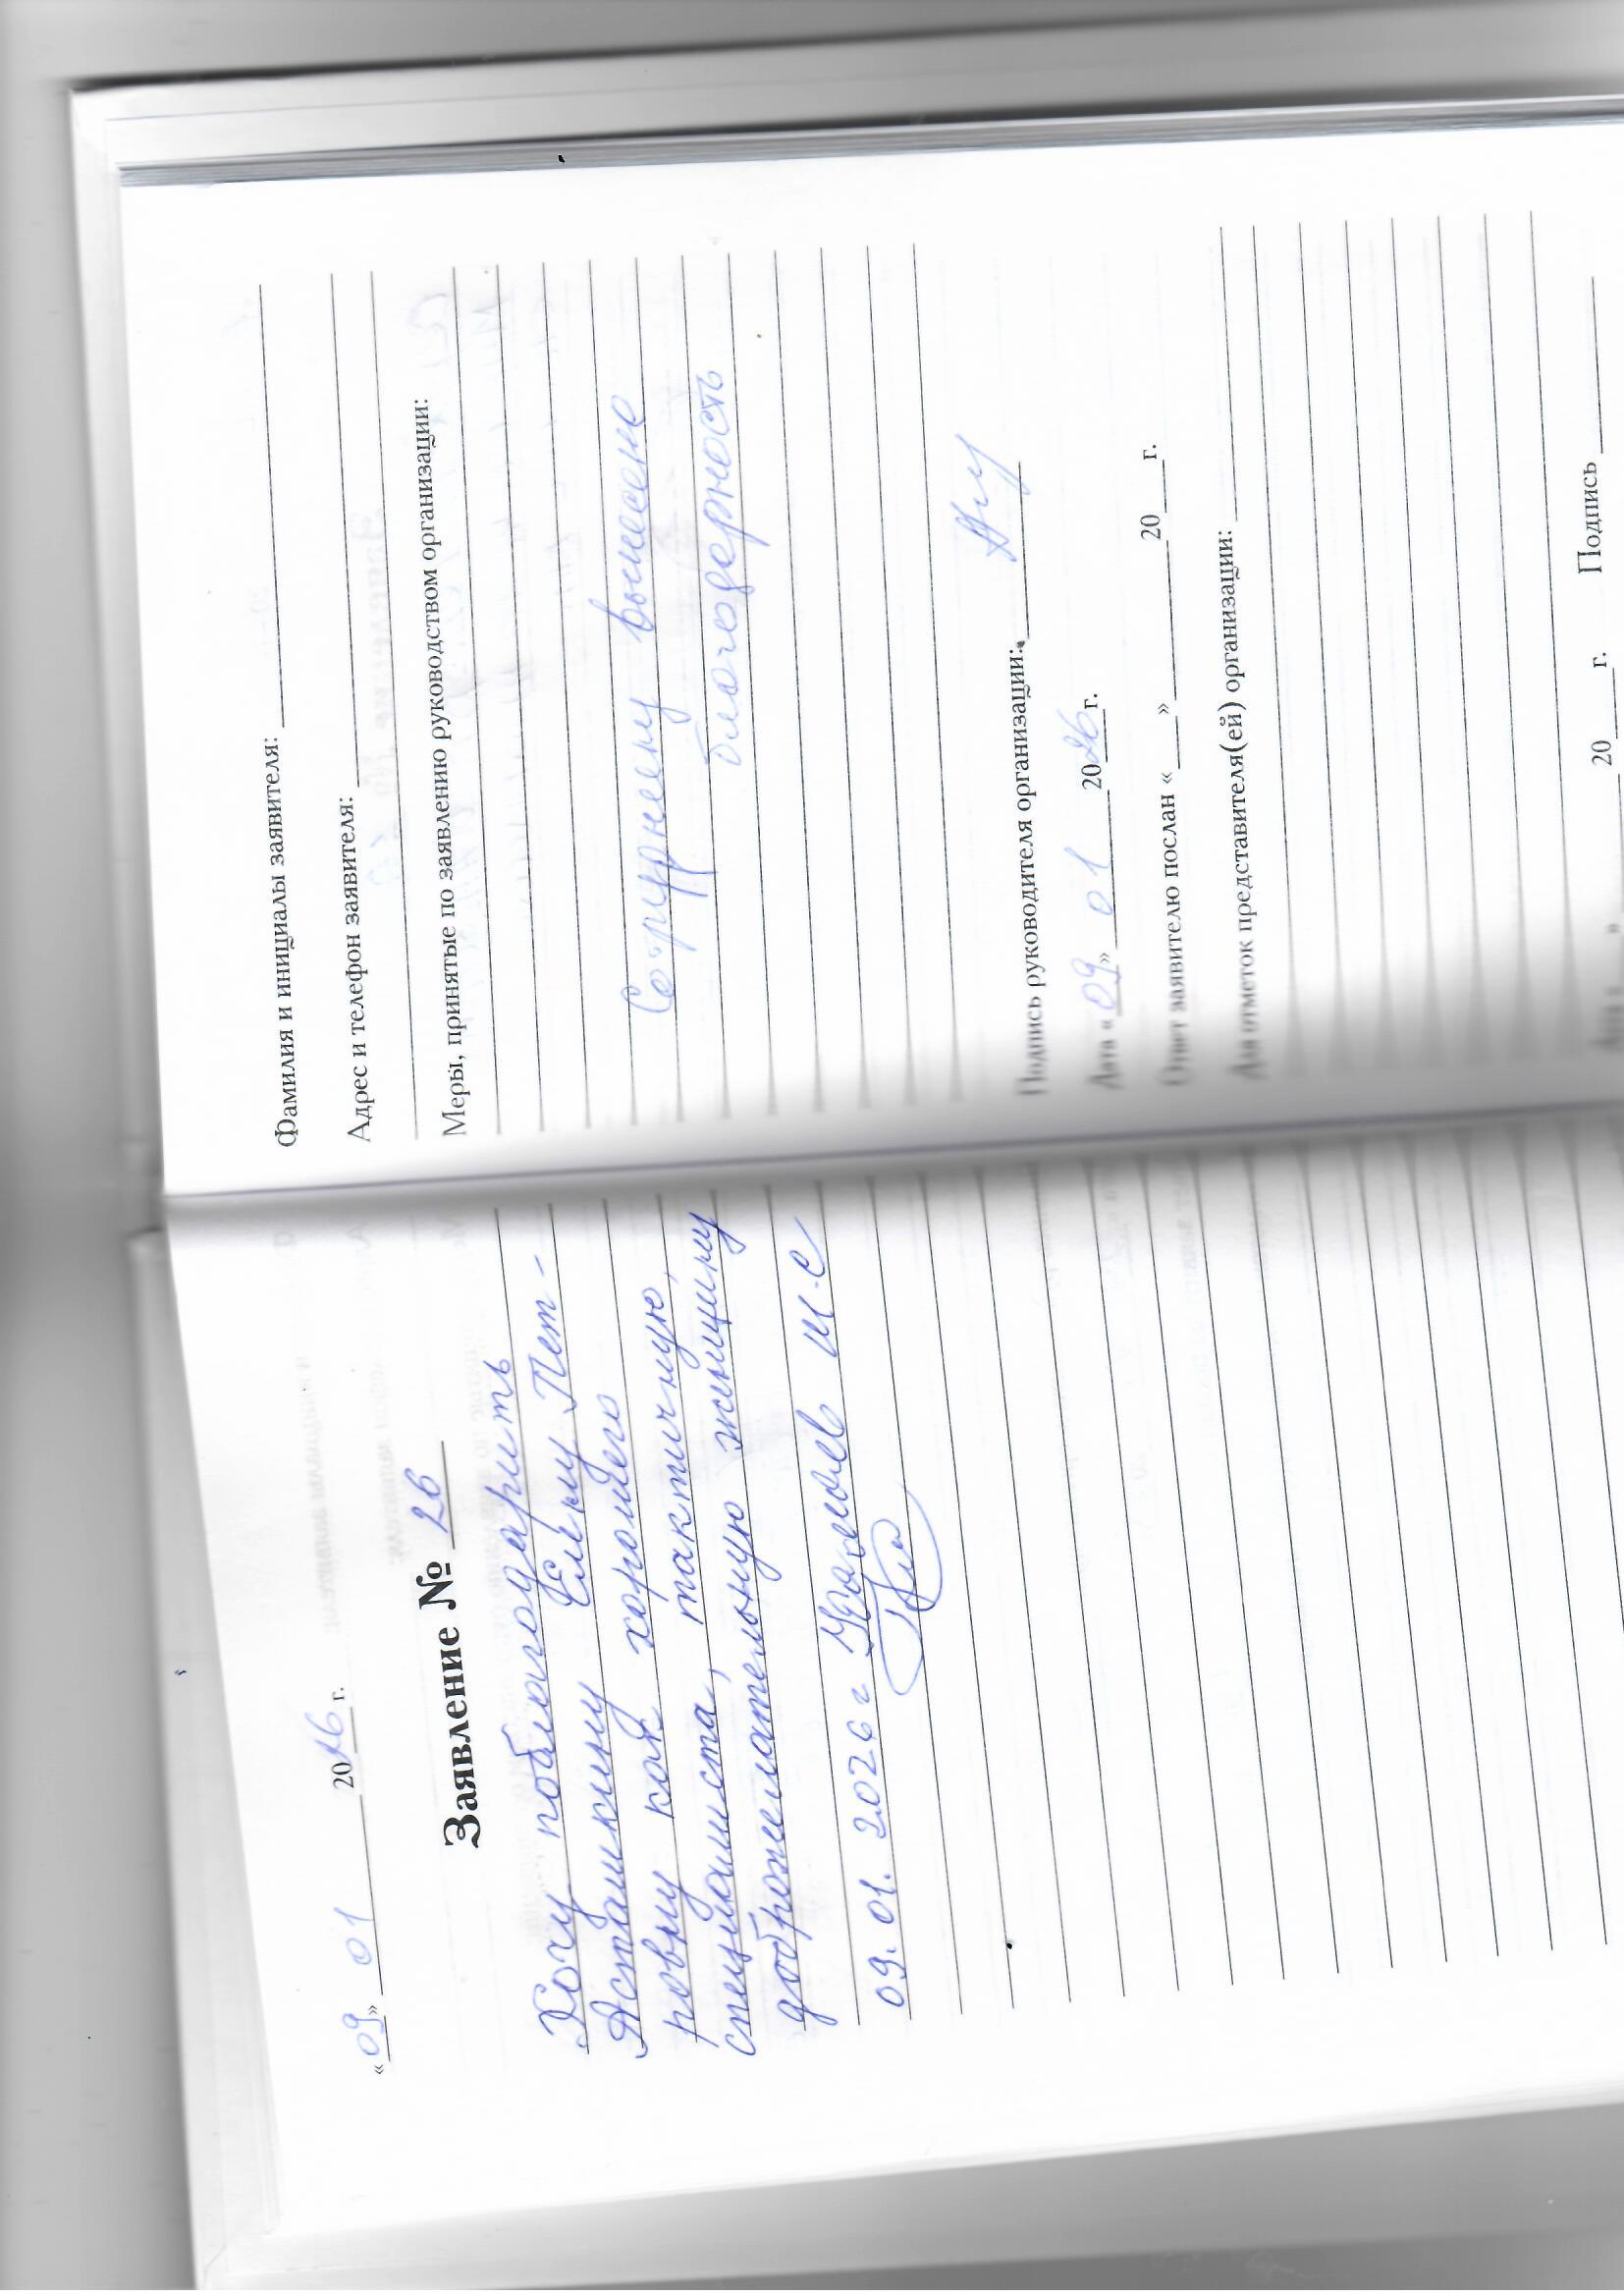 «09» 01 2026 г.
Заявление № 26
Хочу поблагодарить
Асташкину Елену Пет-
ровну как хорошего
специалиста, тактичную,
доброжелательную женщину
09.01.2026 г И.С
Фамилия и инициалы заявителя:
Адрес и телефон заявителя:
Меры, принятые по заявлению руководством организации:
Сотруднику вынесене
благодерность
Подпись руководителя организации:
Дата «09» 01 2026 г.
Ответ заявителю послан « » 20 г.
Для отметок представителя(ей) организации:
Дата « » 20 г. Подпись